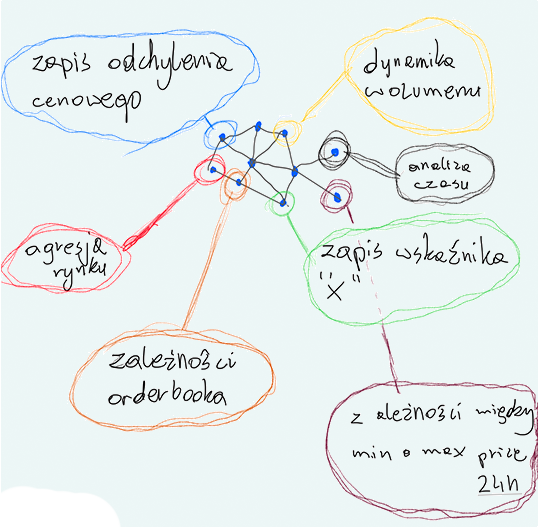 zapis odchylenia
cenowego
dynamika
wolumenu
analiza
czasu
agresja
rynku
zapis wskaźnika
"x"
zależności
orderbooka
zależności między
min a max price
24h